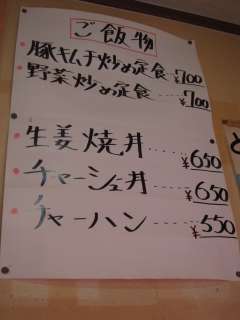 ご飯物
豚キムチ炒め定食 ¥700
野菜炒め定食 ¥700
生姜焼丼 ¥650
チャーシュ丼 ¥650
チャーハン ¥550